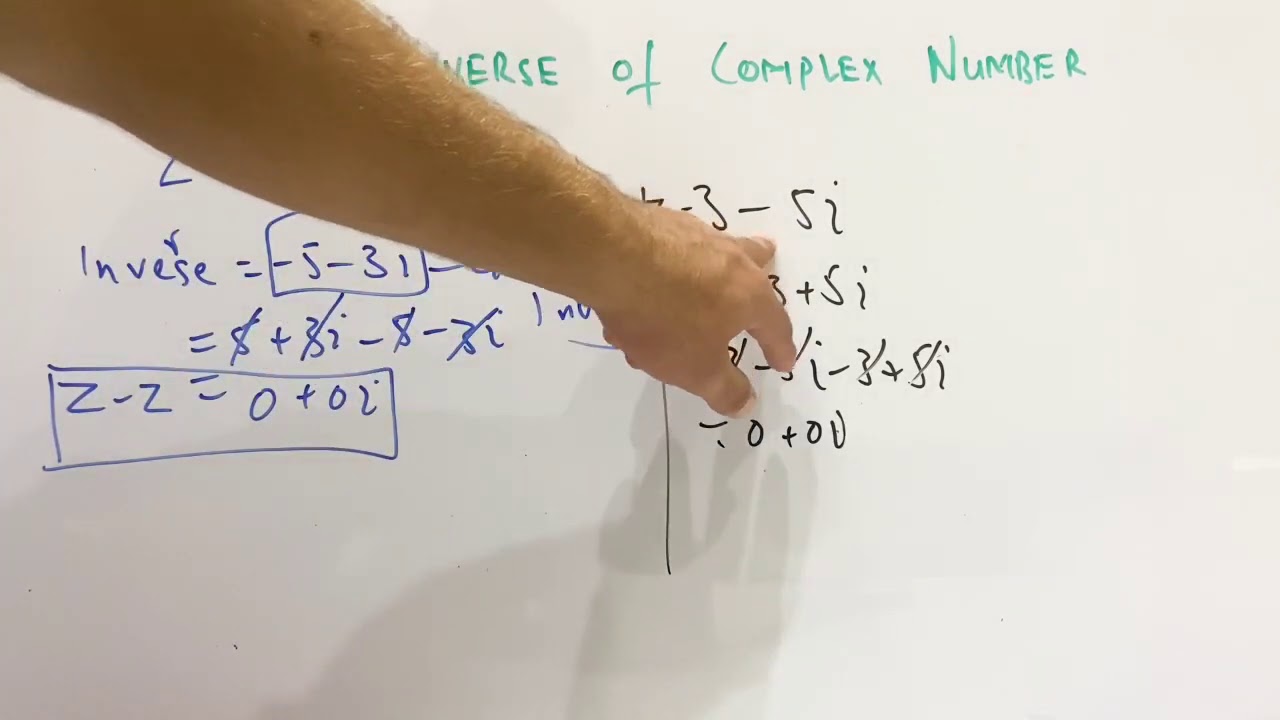 VERSE of COMPLEX NUMBER
Z
Inverse = -5-3i -
= 5+3i-5-3i
Z-Z = 0+0i
3-5i
3+5i
Inv
3-5i-3+5i
= 0+0i